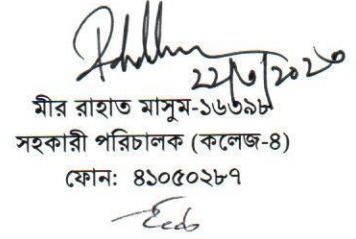 ২২/৩/২০২৩
মীর রাহাত মাসুম-১৬৬৯৮
সহকারী পরিচালক (কলেজ-৪)
ফোন: ৪১০৫০২৮৭